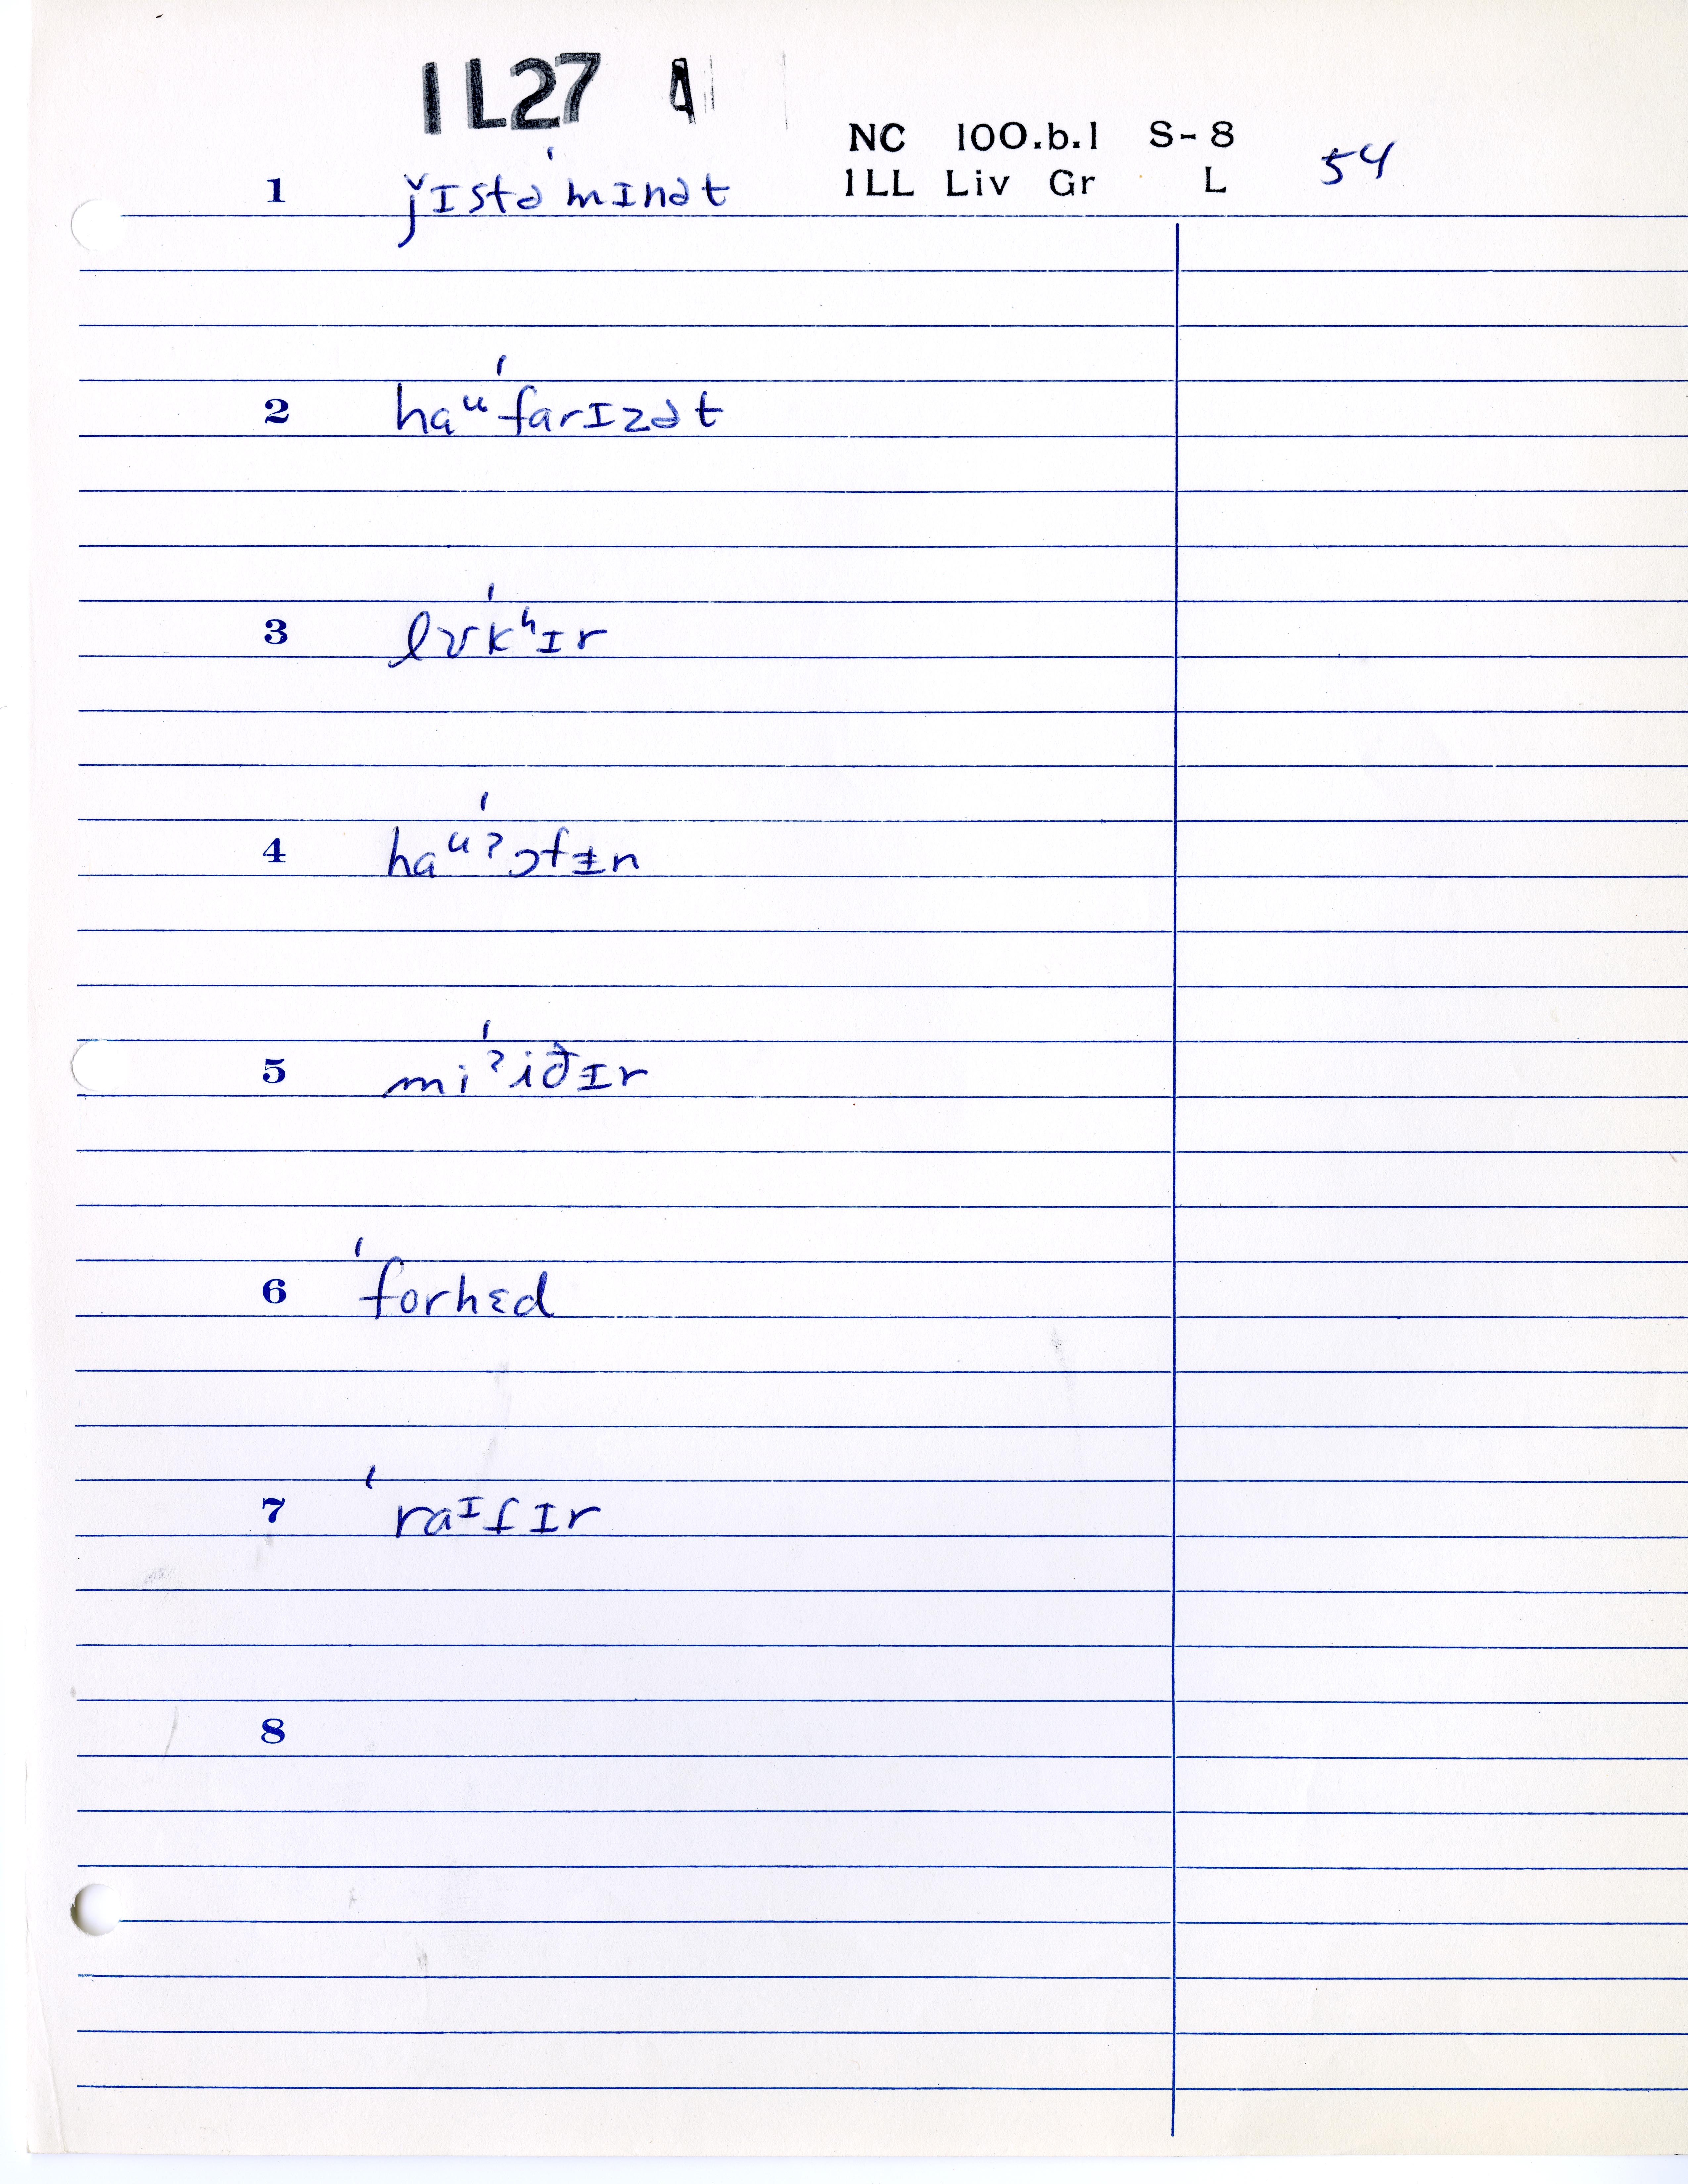 1L27
NC 100.b.1 S-8 54
1LL Liv Gr L
1 ǰɪstəˈmɪnət
2 haᵘˈfarɪzət
3 lʊˈkʰɪr
4 haᵘˈʔɔfɪ̵n
5 miˈʔiðɪr
6 ˈforhɛd
7 ˈraᶦfɪr
8